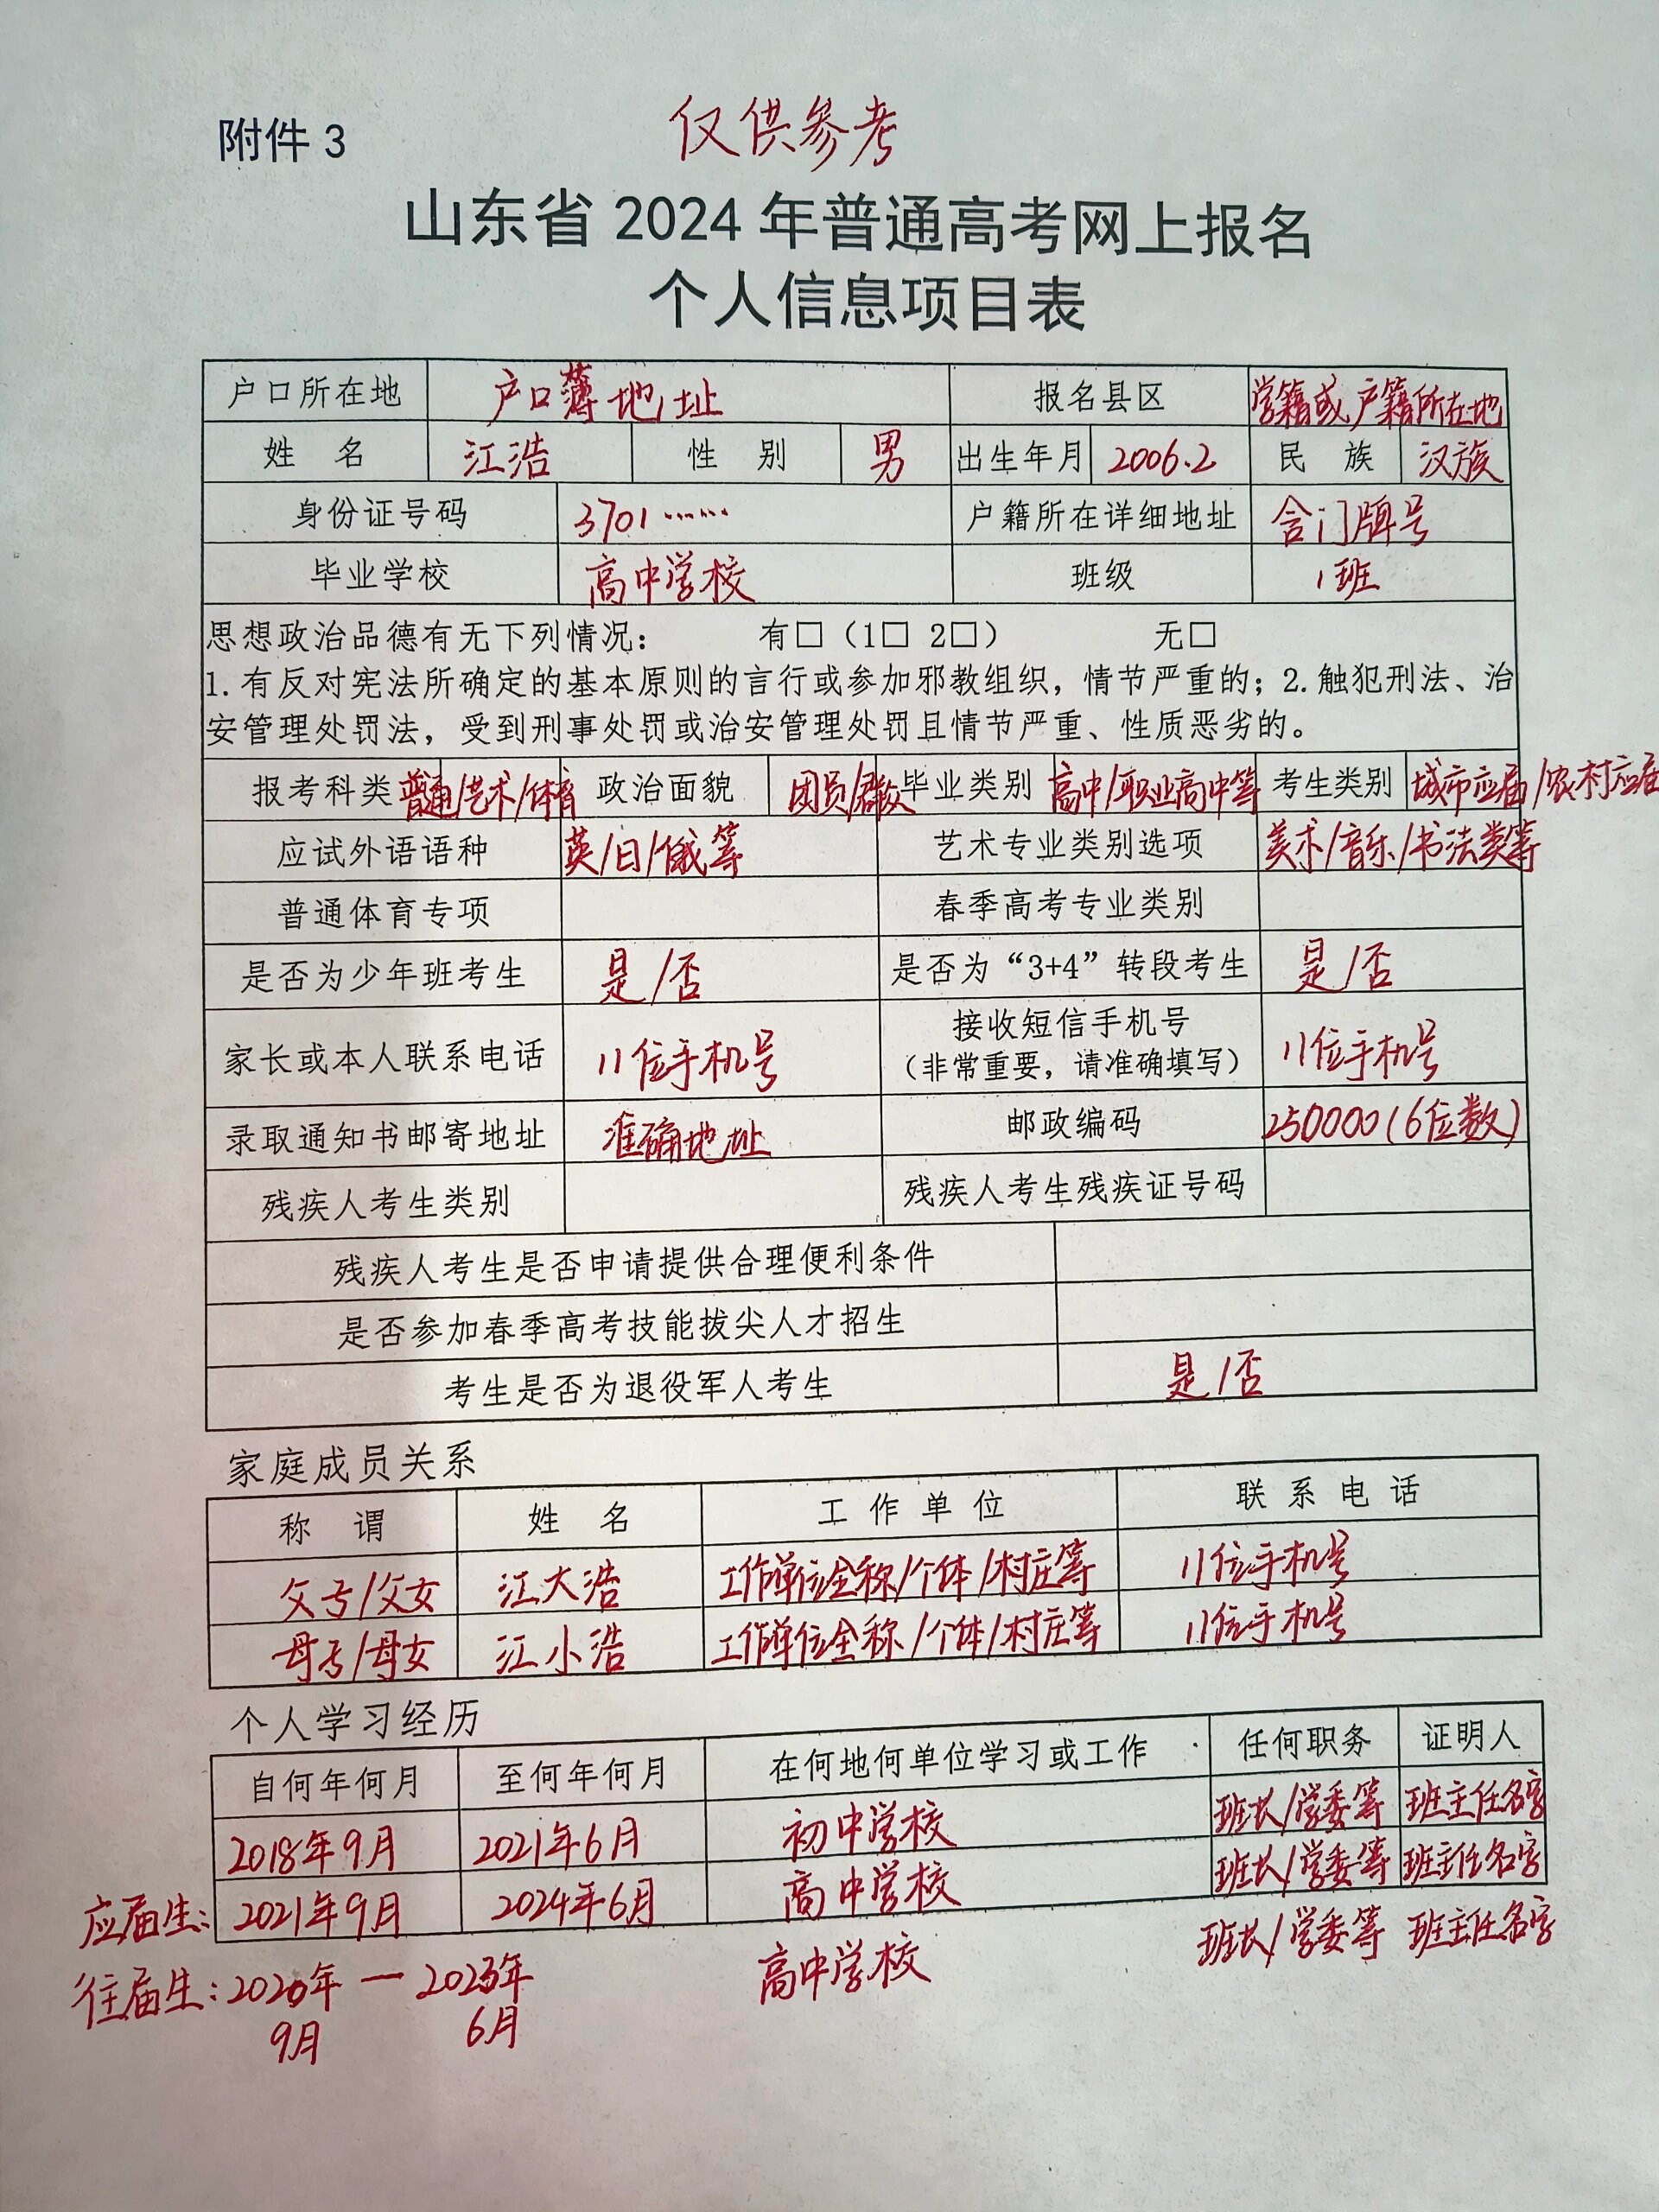 附件 3
仅供参考
山东省 2024 年普通高考网上报名
个人信息项目表
户口所在地 户口薄地址 报名县区 学籍或户籍所在地
姓 名 江浩 性 别 男 出生年月 2006.2 民 族 汉族
身份证号码 3701…… 户籍所在详细地址 含门牌号
毕业学校 高中学校 班级 1班
思想政治品德有无下列情况: 有□（1□ 2□） 无□
1.有反对宪法所确定的基本原则的言行或参加邪教组织，情节严重的；2.触犯刑法、治
安管理处罚法，受到刑事处罚或治安管理处罚且情节严重、性质恶劣的。
报考科类 普通/艺术/体育 政治面貌 团员/群众 毕业类别 高中/职业高中等 考生类别 城市应届/农村应届
应试外语语种 英/日/俄等 艺术专业类别选项 美术/音乐/书法类等
普通体育专项 春季高考专业类别
是否为少年班考生 是/否 是否为“3+4”转段考生 是/否
家长或本人联系电话 11位手机号 接收短信手机号
（非常重要，请准确填写） 11位手机号
录取通知书邮寄地址 准确地址 邮政编码 250000(6位数)
残疾人考生类别 残疾人考生残疾证号码
残疾人考生是否申请提供合理便利条件
是否参加春季高考技能拔尖人才招生
考生是否为退役军人考生 是/否
家庭成员关系
称 谓 姓 名 工 作 单 位 联 系 电 话
父子/父女 江大浩 工作单位全称/个体/村庄等 11位手机号
母子/母女 江小浩 工作单位全称/个体/村庄等 11位手机号
个人学习经历
自何年何月 至何年何月 在何地何单位学习或工作 任何职务 证明人
2018年9月 2021年6月 初中学校 班长/学委等 班主任名字
应届生: 2021年9月 2024年6月 高中学校 班长/学委等 班主任名字
往届生: 2020年 — 2023年 高中学校 班长/学委等 班主任名字
9月 6月